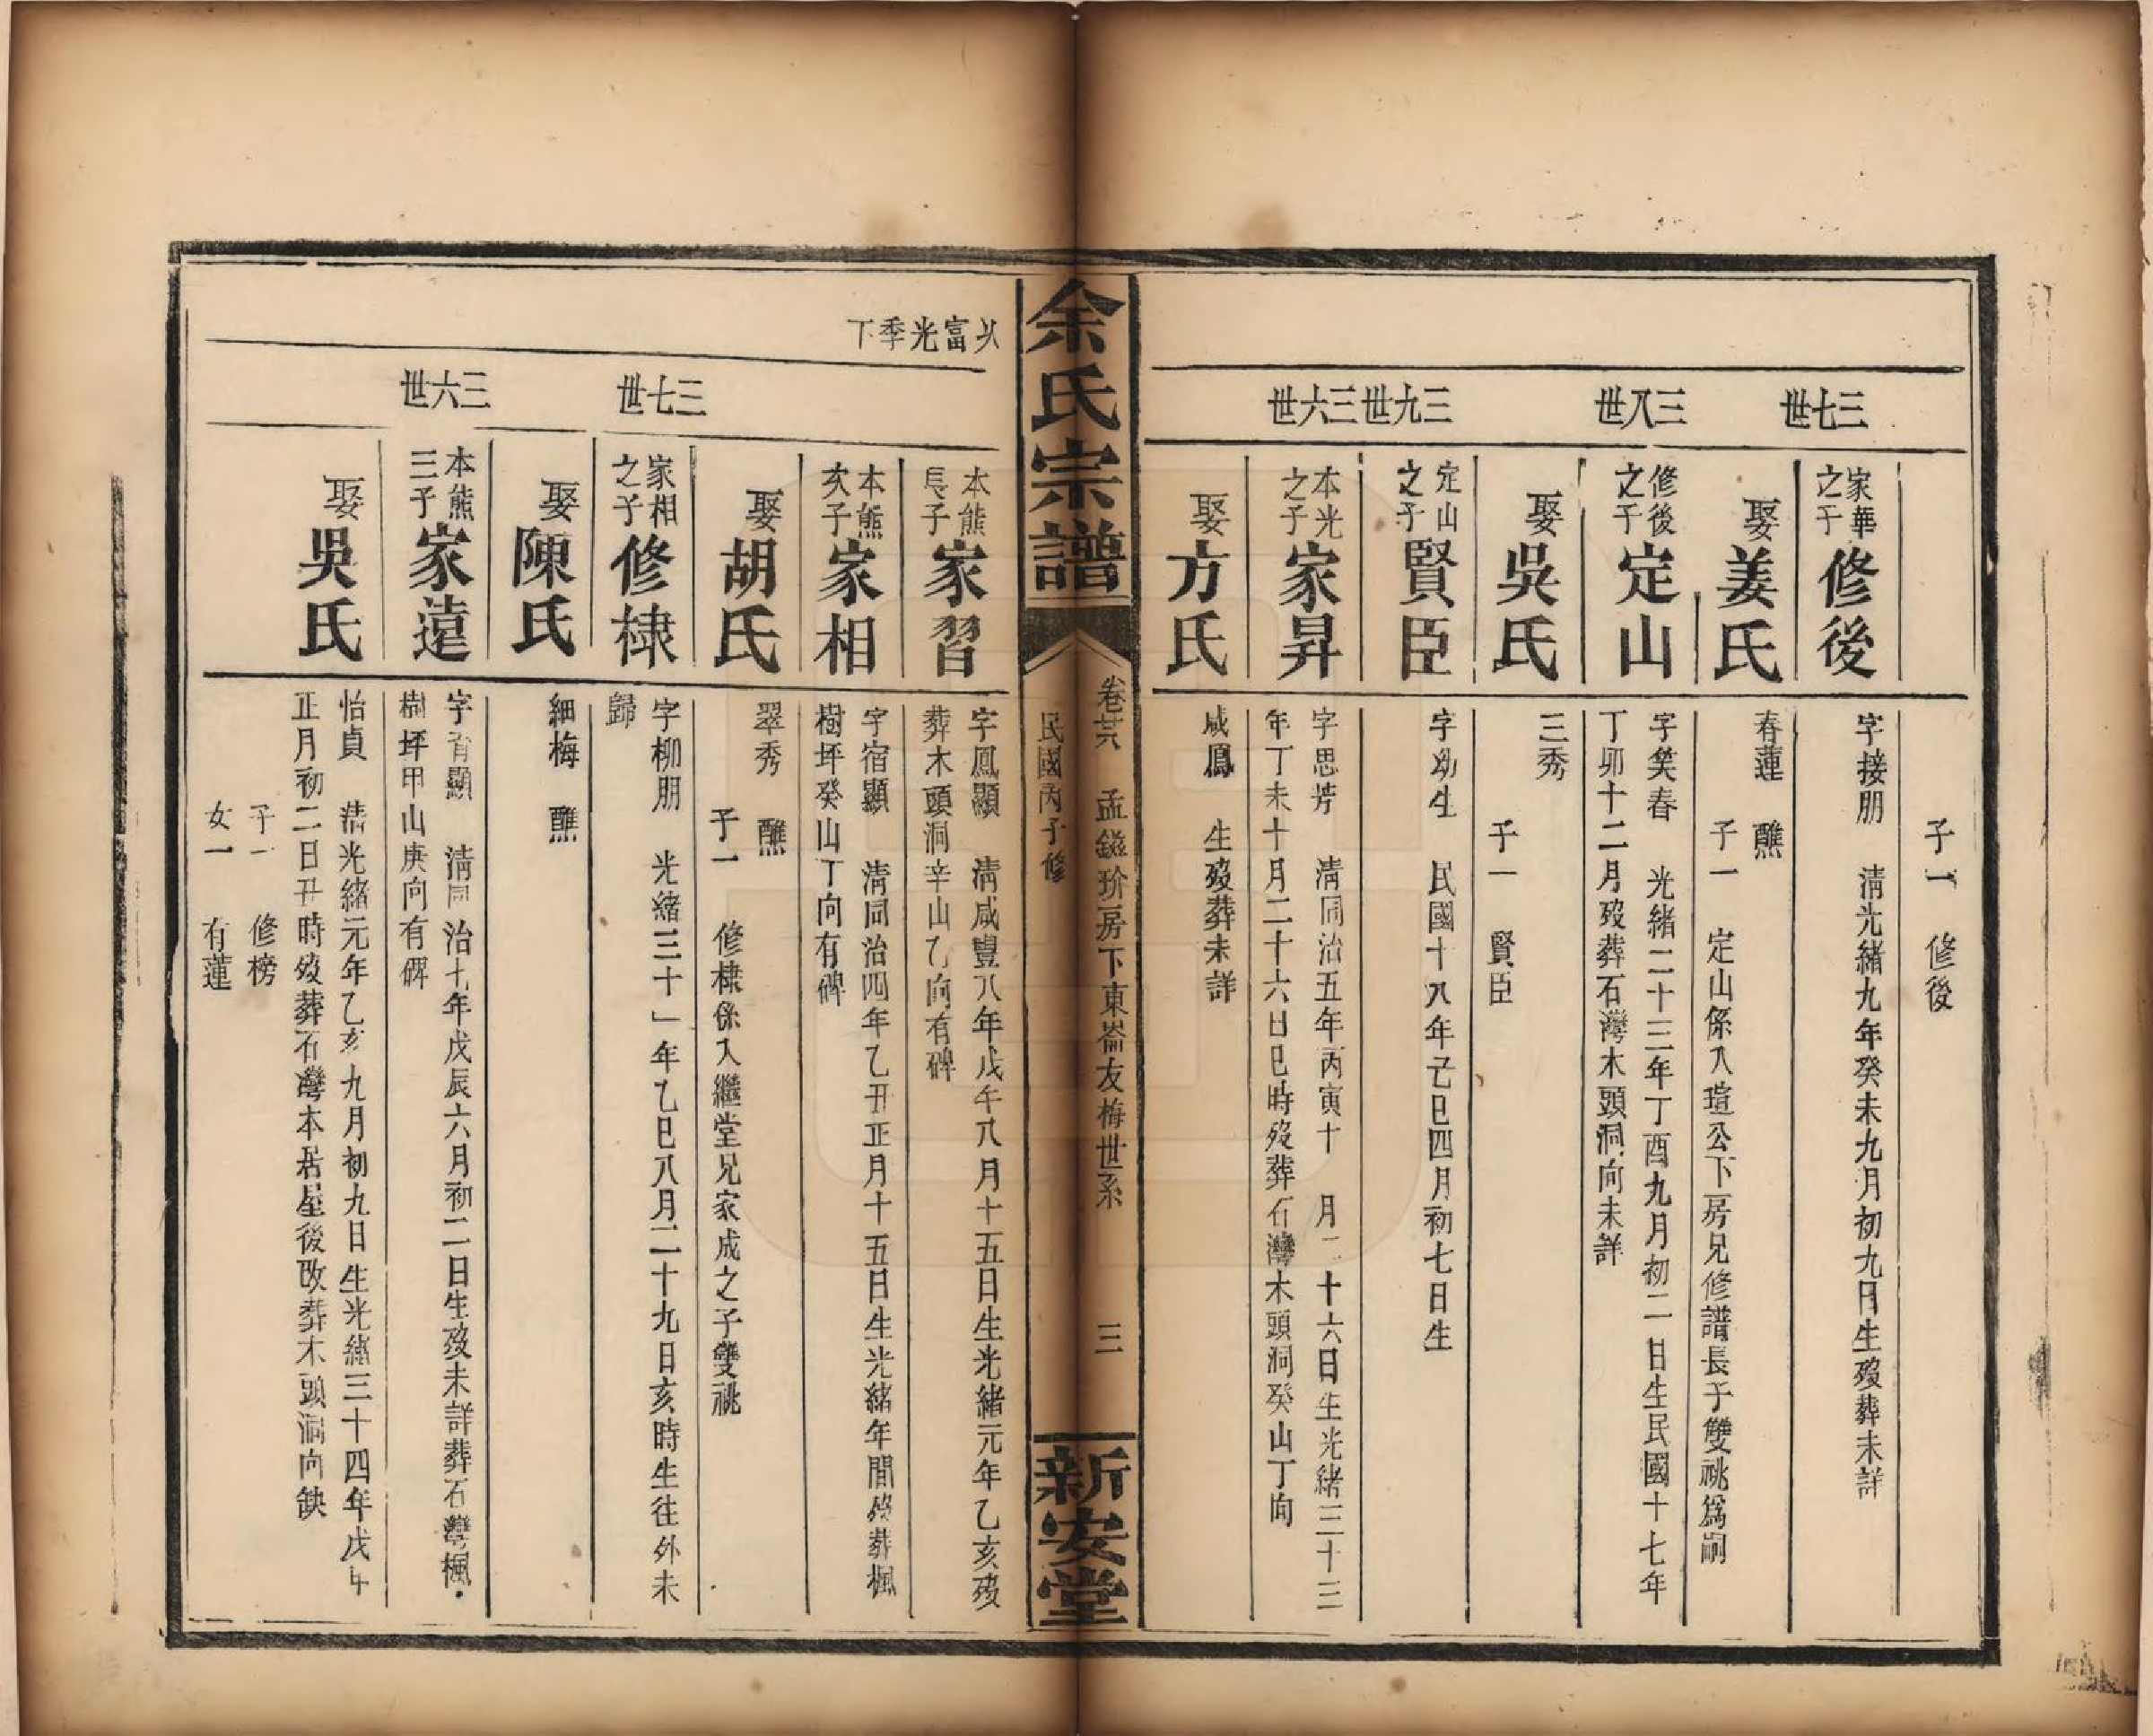 子一　修後
三七世
家華之子
修後
字接朋　清光緒九年癸未九月初九日生歿葬未詳
娶姜氏
春蓮　醮
子一　定山係入瑄公下房兄修譜長子雙祧爲嗣
三八世
修後之子
定山
字笑春　光緒二十三年丁酉九月初二日生民國十七年
丁卯十二月歿葬石灣木頭洞向未詳
娶吳氏
三秀
子一　賢臣
三九世
定山之子
賢臣
字幼生　民國十八年己巳四月初七日生
三六世
本光之子
家昇
字思芳　清同治五年丙寅十　月二十六日生光緒三十三
年丁未十月二十六日巳時歿葬石灣木頭洞癸山丁向
娶方氏
咸鳳　生歿葬未詳
余氏宗譜
卷廿六　孟鎰玠房下東崙友梅世系　三
民國丙子修
新安堂
以富光季下
本熊長子
家習
字鳳顯　清咸豐八年戊午八月十五日生光緒元年乙亥歿
葬木頭洞辛山乙向有碑
本熊次子
家相
字宿顯　清同治四年乙丑正月十五日生光緒年間歿葬楓
樹坪癸山丁向有碑
娶胡氏
翠秀　醮
子一　修棣係入繼堂兄家成之子雙祧
三七世
家相之子
修棣
字柳朋　光緒三十一年乙巳八月二十九日亥時生往外未
歸
娶陳氏
細梅　醮
三六世
本熊三子
家遠
字有顯　清同治七年戊辰六月初二日生歿未詳葬石灣楓
樹坪甲山庚向有碑
娶吳氏
怡貞　清光緒元年乙亥九月初九日生光緒三十四年戊午
正月初二日丑時歿葬石灣本居屋後改葬木頭洞向缺
子一　修榜
女一　有蓮